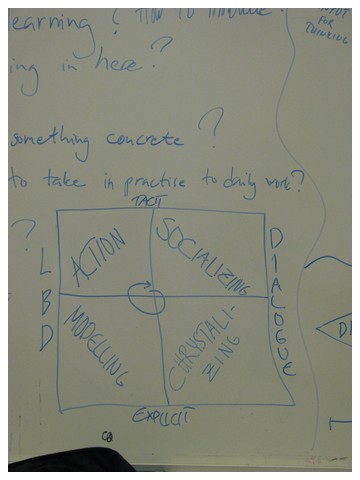 learning? How to
ing in here?
FOR
THINKING
something concrete?
to take in practice to daily work?
?
TACIT
ACTION
SOCIALIZING
LBD
DIALOGUE
MODELLING
CHRYSTALI-
ZING
EXPLICIT